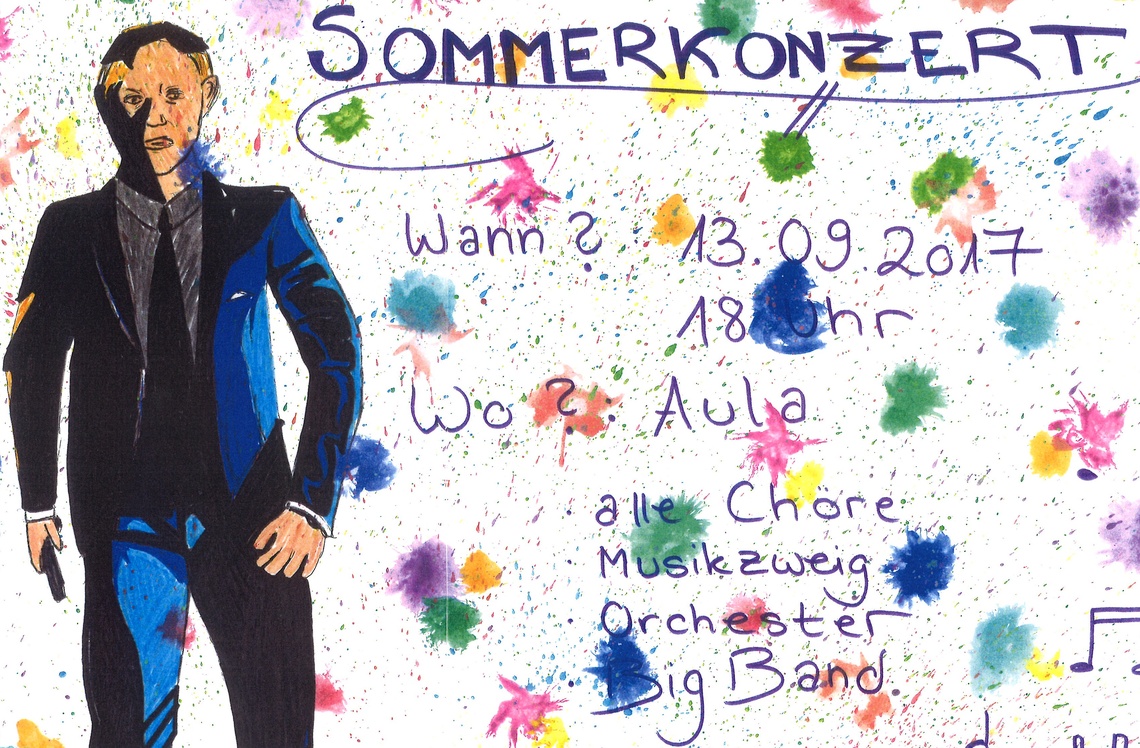 SOMMERKONZERT
Wann? 13.09.2017
18 Uhr
Wo?: Aula
alle Chöre
Musikzweig
Orchester
Big Band